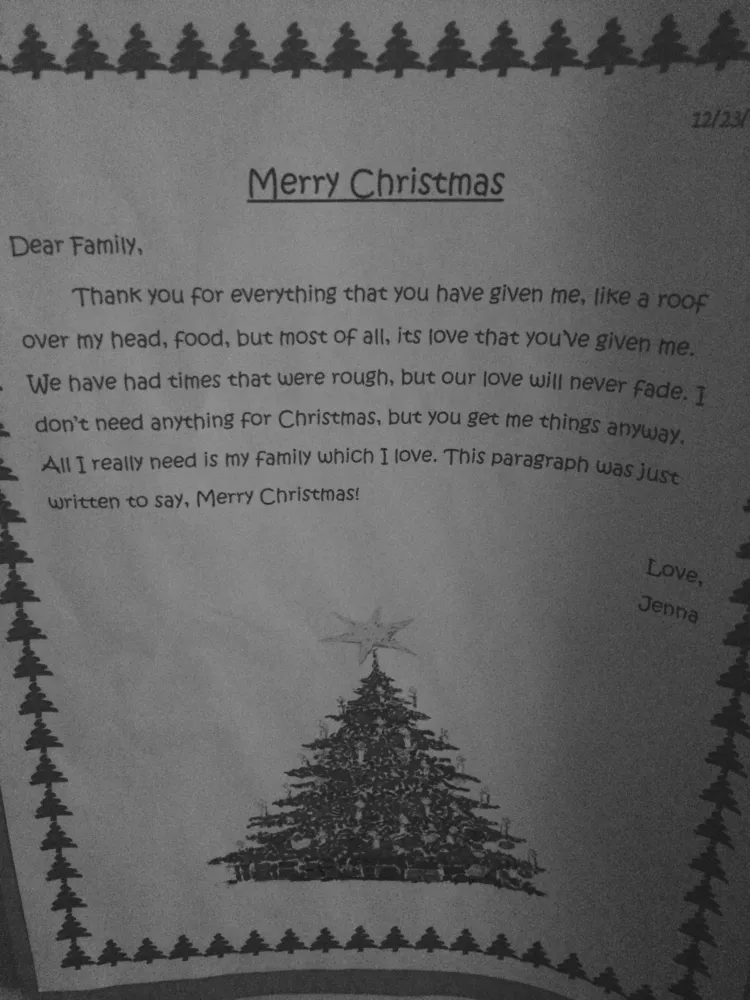 12/23/
Merry Christmas
Dear Family,
Thank you for everything that you have given me, like a roof
over my head, food, but most of all, its love that you've given me.
We have had times that were rough, but our love will never fade. I
don't need anything for Christmas, but you get me things anyway.
All I really need is my family which I love. This paragraph was just
written to say, Merry Christmas!
Love,
Jenna